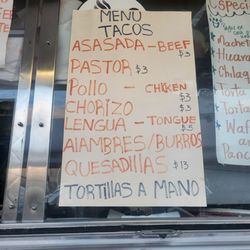 MENU
TACOS
ASASADA - BEEF
$3
PASTOR $3
Pollo - CHIKEN
$3
CHORIZO $3
LENGUA - TONGUE
$5
AlAMBRES/BURROS
QUESADILLAS $13
TORTILLAS A MANO
Speci
Machet
Huara
Chila
Torta
Torta
Wa
an
Panc